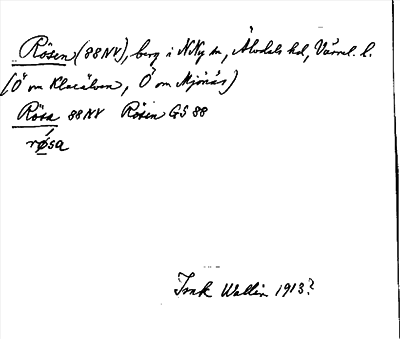 Rösen (88NV), berg i N Ny sn, Älvdals hd, Värml. l.
(Ö om Klarälven, Ö om Mjönäs)
Rösa 88NV Rösen GS 88
røsa
Isak Wallin 1913?